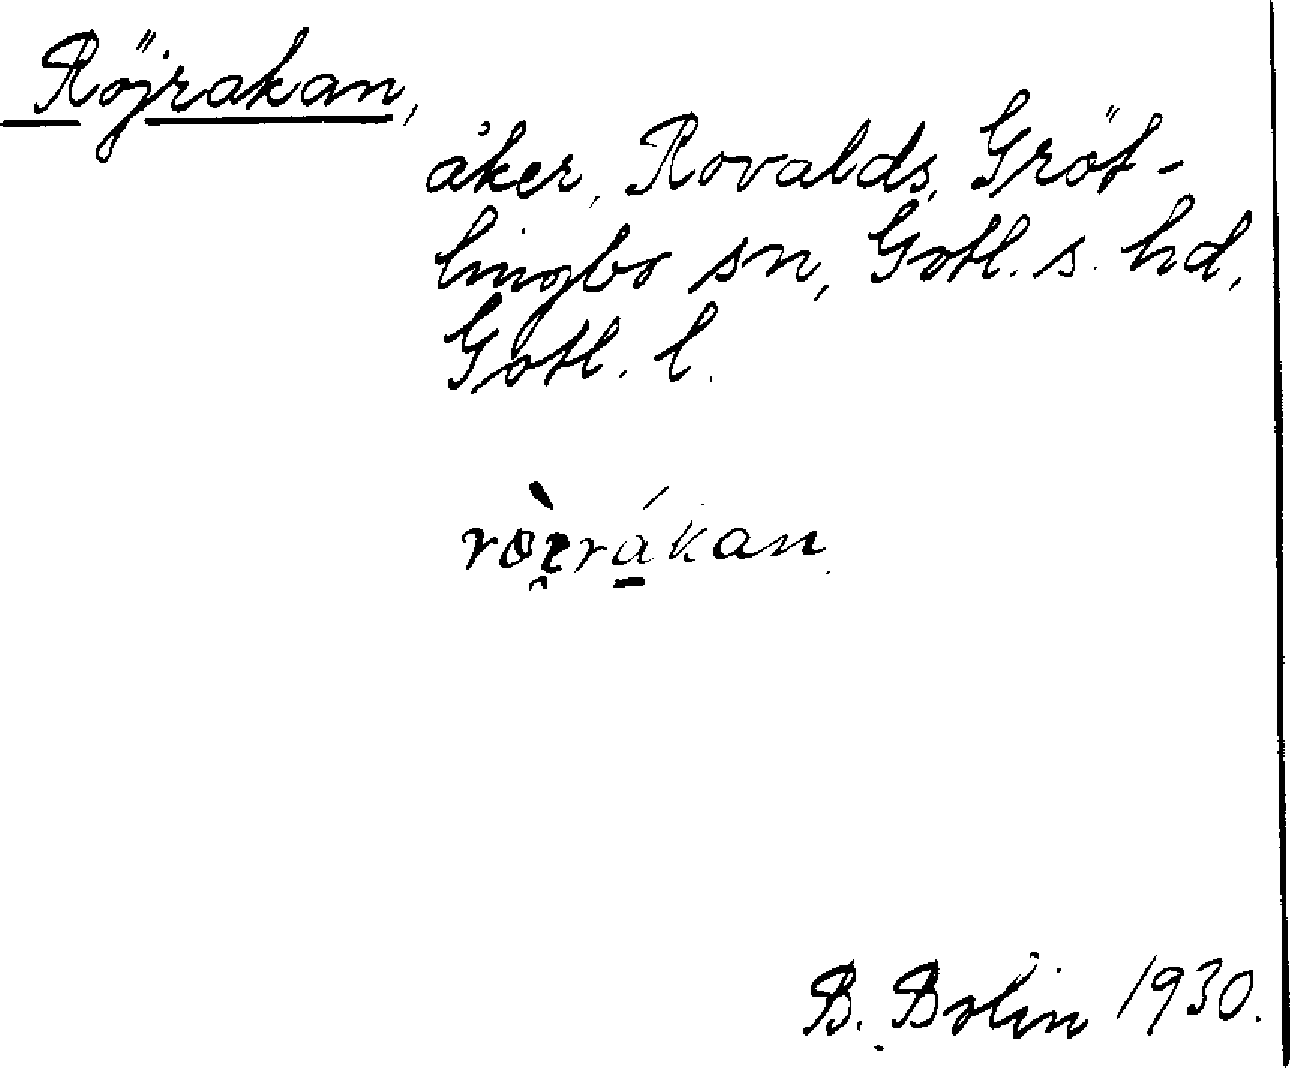 Röjrakan,
åker, Rovalds, Gröt-
lingbo sn, Gotl. s. hd,
Gotl. l.
B. Bolin 1930.